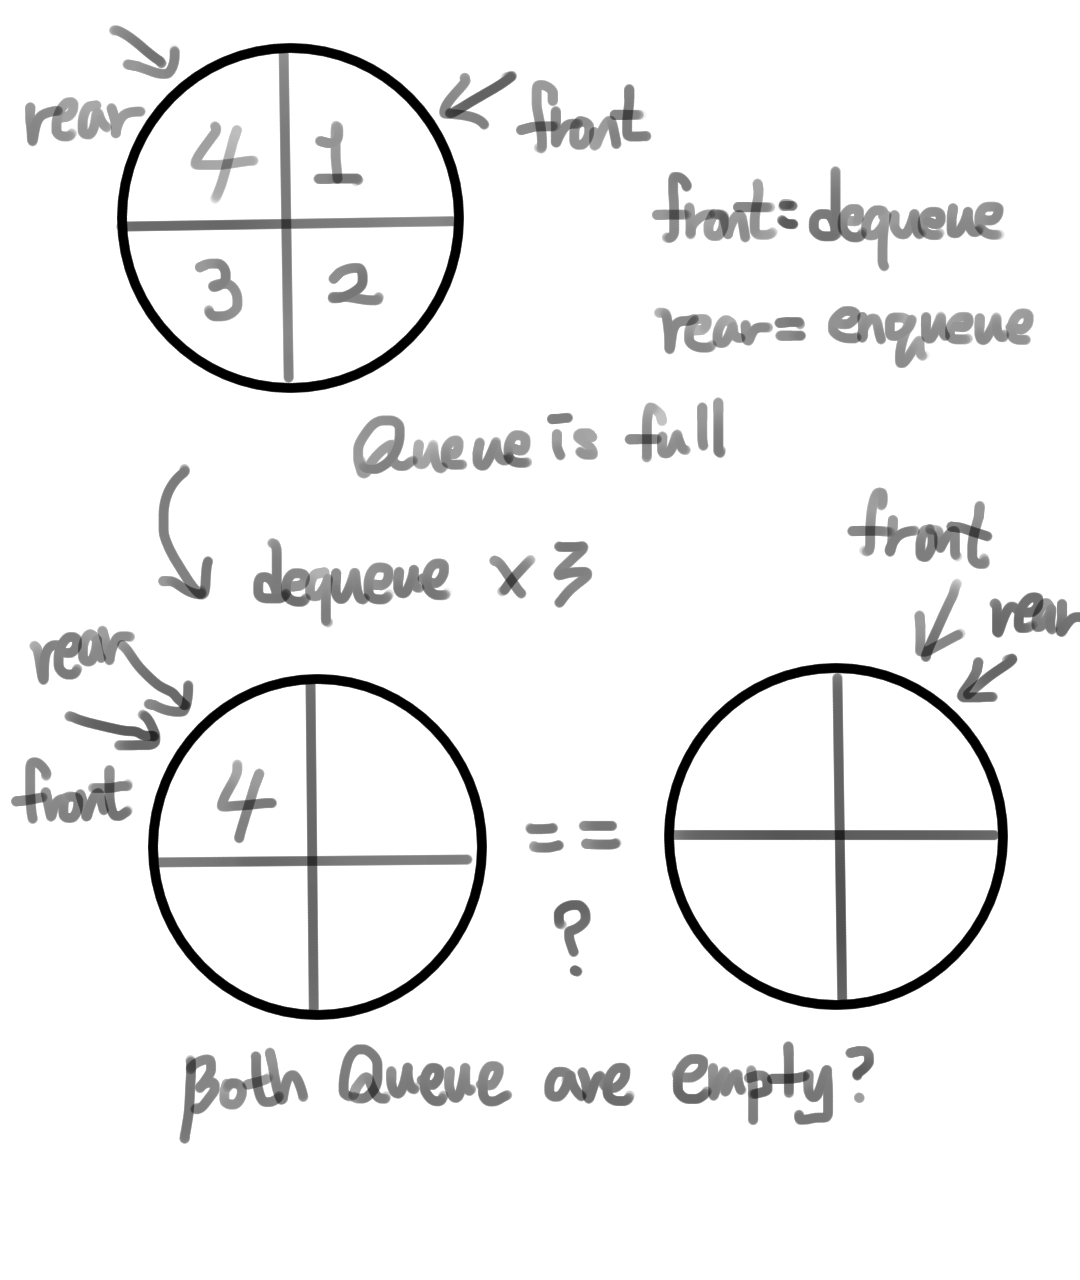 rear
front
4 1
3 2
front = dequeue
rear = enqueue
Queue is full
dequeue × 3
front
rear
rear
front
4
= =
?
Both Queue are empty?